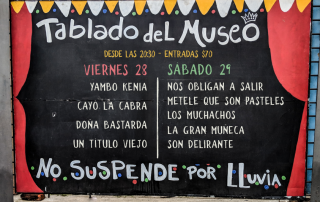 Tablado del Museo
DESDE LAS 20:30 - ENTRADAS $70
VIERNES 28
YAMBO KENIA
CAYO LA CABRA
DOÑA BASTARDA
UN TITULO VIEJO
SABADO 29
NOS OBLIGAN A SALIR
METELE QUE SON PASTELES
LOS MUCHACHOS
LA GRAN MUÑECA
SON DELIRANTE
NO SUSPENDE POR LLuvia